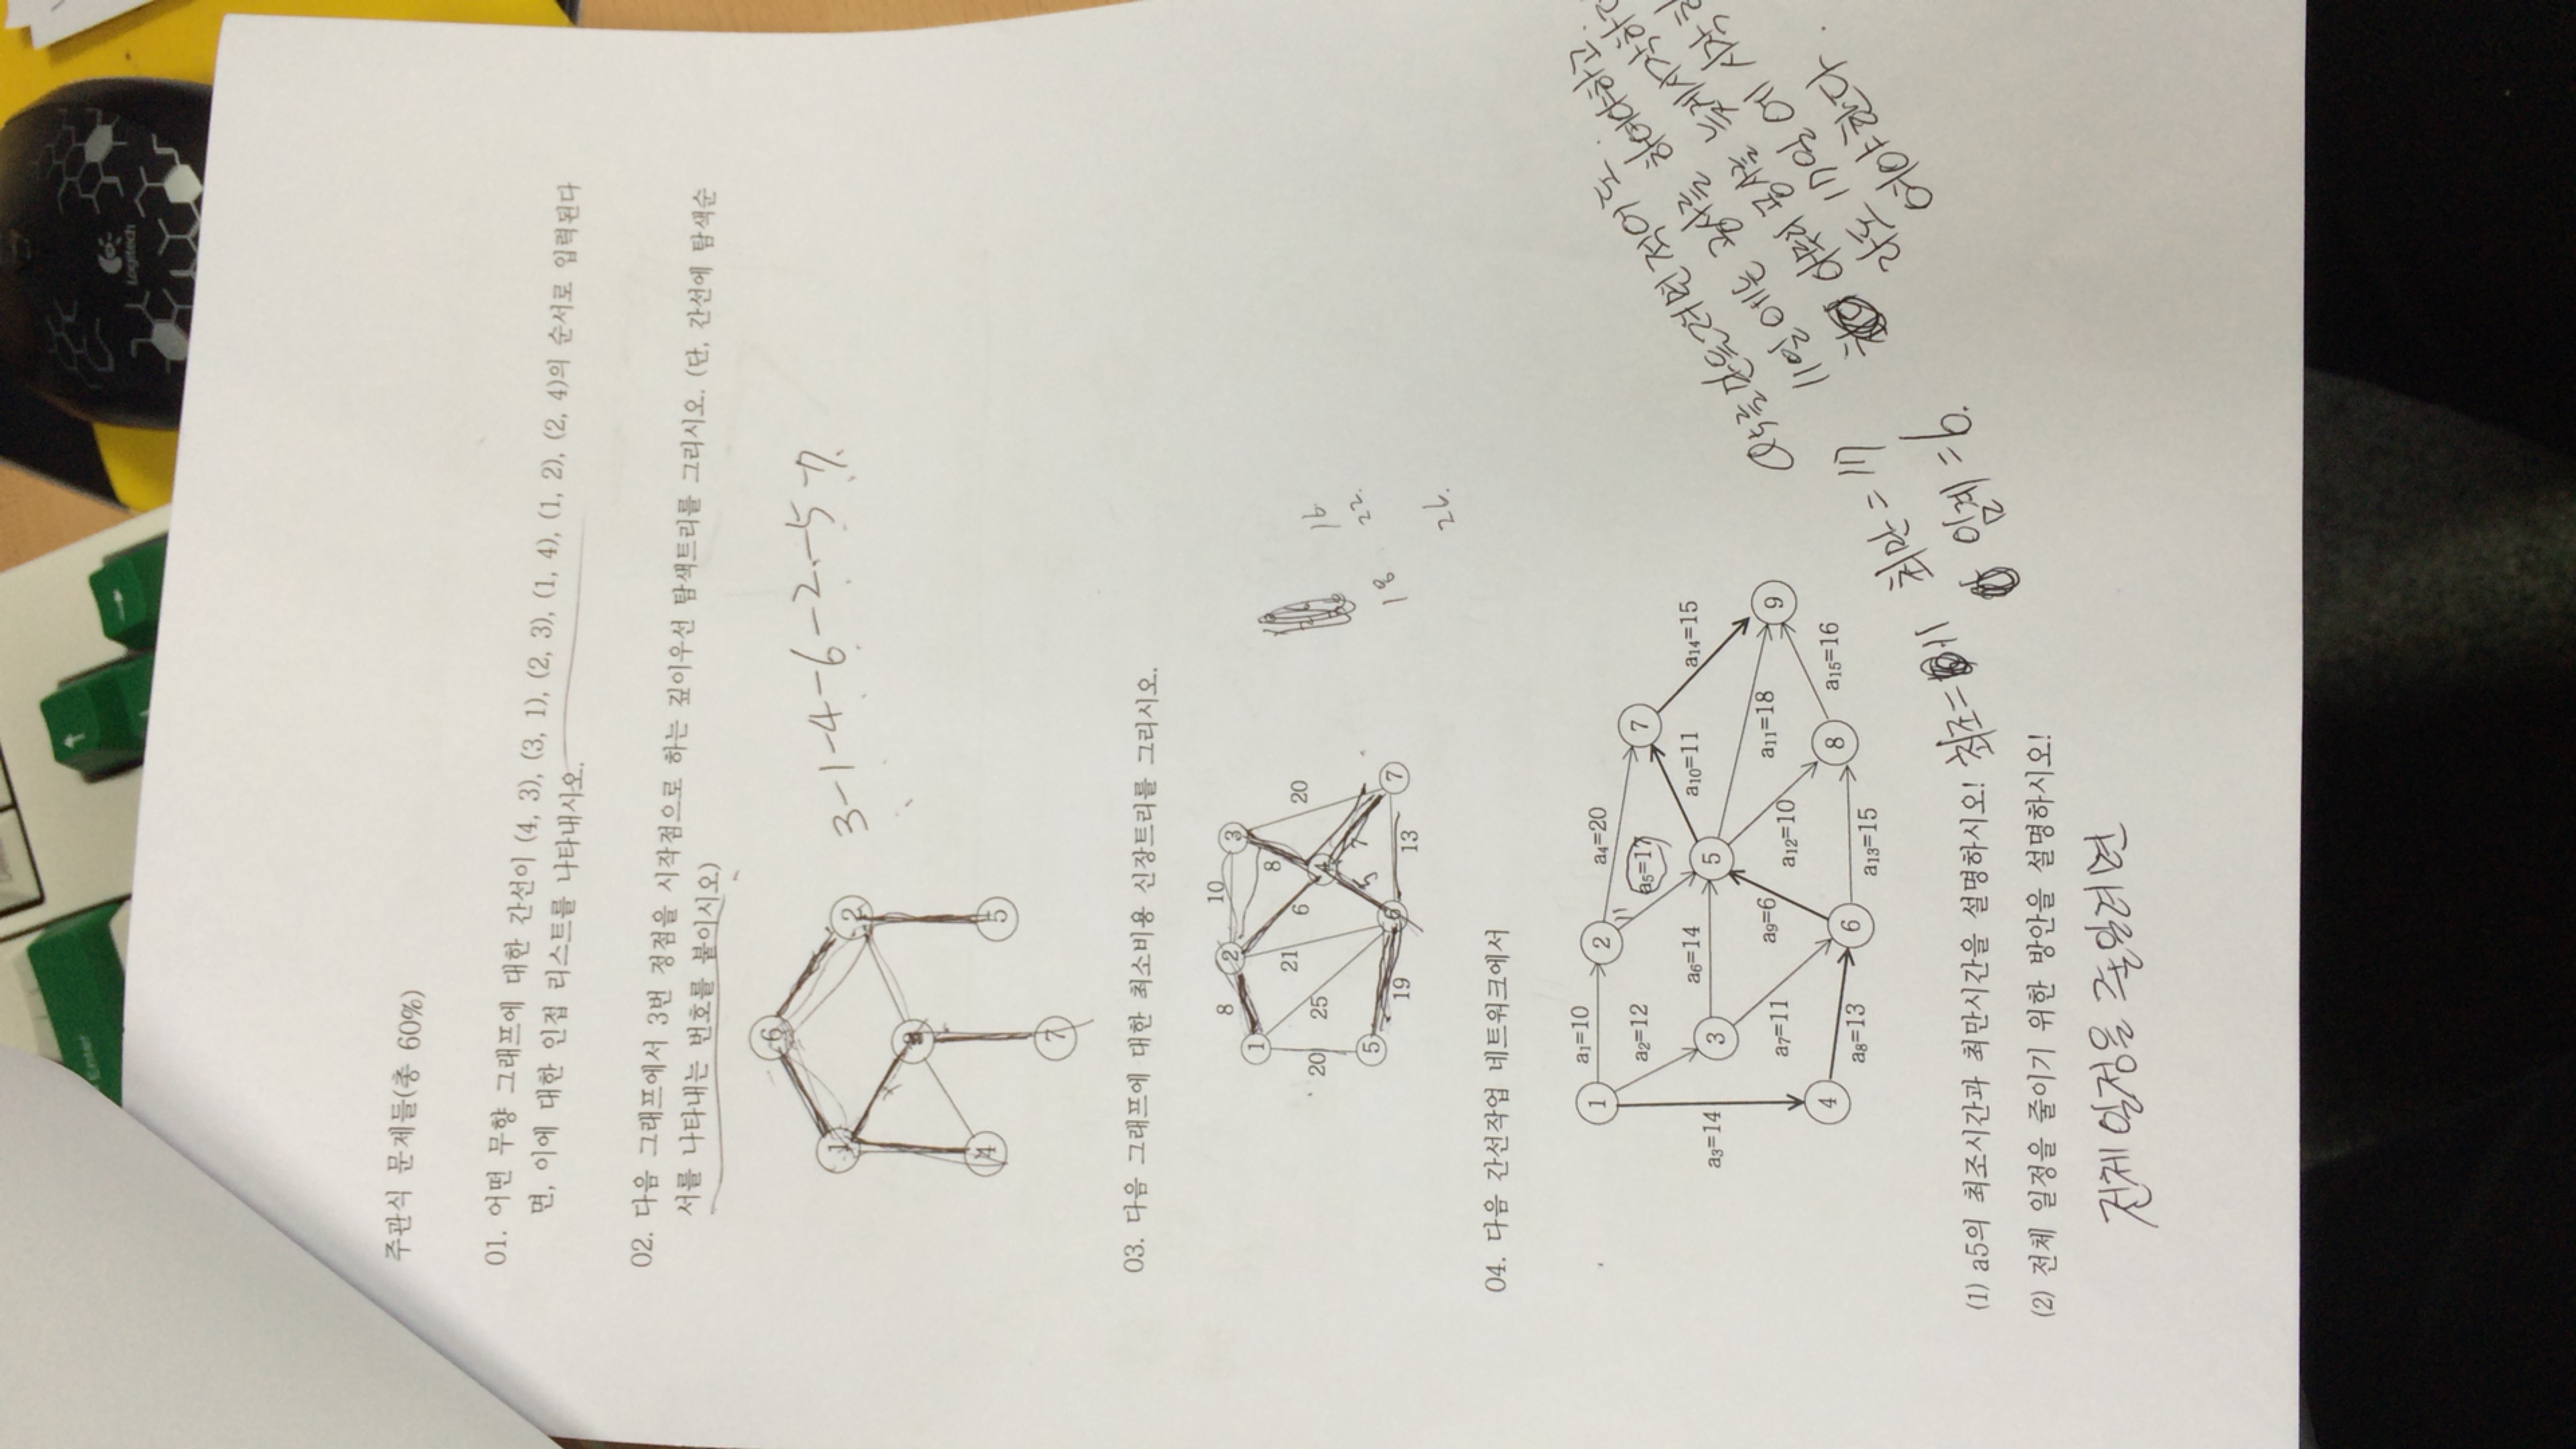 Enter
Logitech
주관식 문제들(총 60%)
01. 어떤 무향 그래프에 대한 간선이 (4, 3), (3, 1), (2, 3), (1, 4), (1, 2), (2, 4)의 순서로 입력된다
면, 이에 대한 인접 리스트를 나타내시오.
02. 다음 그래프에서 3번 정점을 시작점으로 하는 깊이우선 탐색트리를 그리시오. (단, 간선에 탐색순
서를 나타내는 번호를 붙이시오)
6
1
2
3
4
5
7
3-1-4-6-2-5-7
03. 다음 그래프에 대한 최소비용 신장트리를 그리시오.
8
10
1
2
3
20
25
21
6
8
20
4
5
7
5
19
6
13
7
16
22
18
26.
04. 다음 간선작업 네트워크에서
1
a1=10
2
a4=20
a2=12
11
a5=17
7
a3=14
3
a6=14
5
a10=11
a14=15
a7=11
a9=6
a12=10
a11=18
9
4
a8=13
6
a13=15
8
a15=16
a5를 만들려면 적어도
11일에는 공사를 하여야하고
아무리 공사를 늦게시작하
라도 17일에 시작하
여야 한다.
(1) a5의 최조시간과 최만시간을 설명하시오! 최조=11 최만=17
임계=6.
(2) 전체 일정을 줄이기 위한 방안을 설명하시오!
전체 일정을 줄일려면